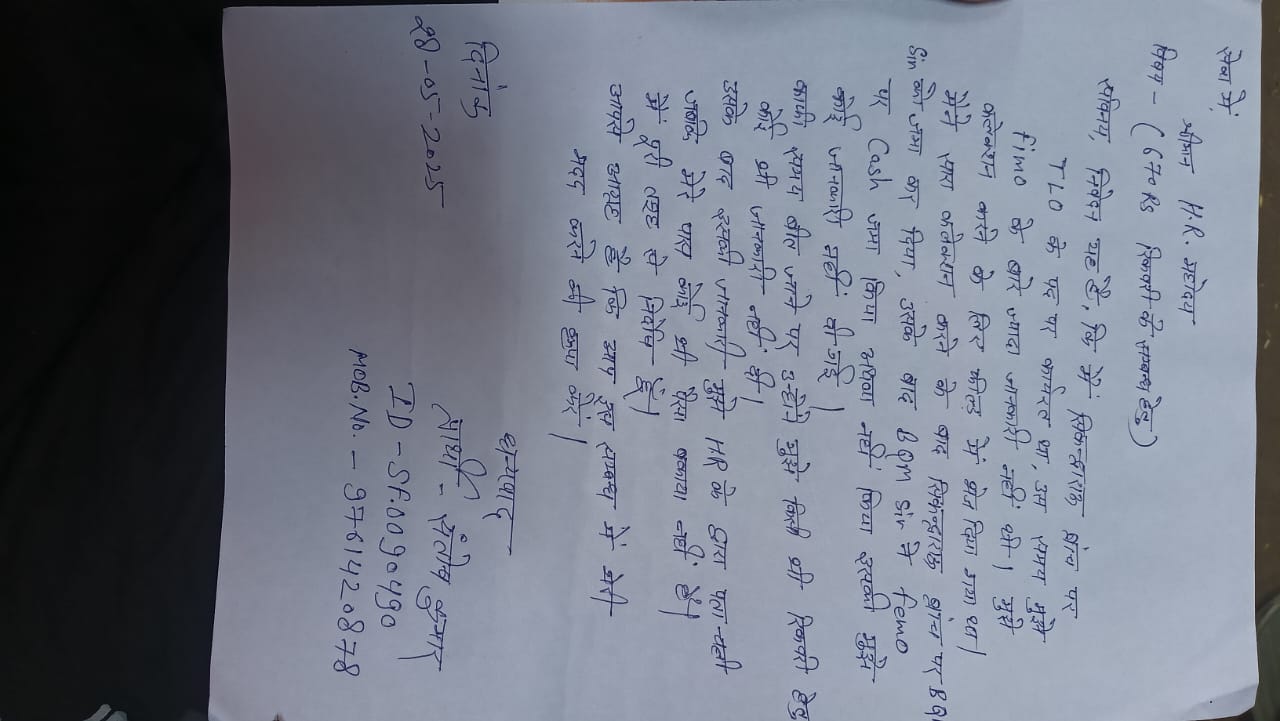 सेवा में,
श्रीमान H.R. महोदय
विषय - ( 670 Rs रिकवरी के सम्बन्ध हेतु )
सविनय, निवेदन यह है, कि मैं ब्रांच पर
TLO के पद पर कार्यरत था, उस समय मुझे
Fimo के बारे ज्यादा जानकारी नहीं थी। मुझे
कलेक्शन करने के लिए फील्ड में भेज दिया गया था।
मैंने सारा कलेक्शन करने के बाद ब्रांच पर BQM
Sir को जमा कर दिया, उसके बाद BQM Sir ने femo
पर Cash जमा किया अथवा नहीं किया इसकी मुझे
कोई जानकारी नहीं दी गई।
काफी समय बीत जाने पर उन्होंने मुझे किसी भी रिकवरी हेतु
कोई भी जानकारी नहीं दी।
उसके बाद इसकी जानकारी मुझे HR के द्वारा पता चली
जबकि मेरे पास कोई भी पैसा बकाया नहीं है।
मैं पूरी तरह से निर्दोष हूँ।
आपसे आग्रह है कि आप इस सम्बन्ध में मेरी
मदद करने की कृपा करें।
धन्यवाद
दिनांक
28-05-2025
प्रार्थी - संतोष कुमार
ID - SF.0090490
MOB.No. - 9761420878